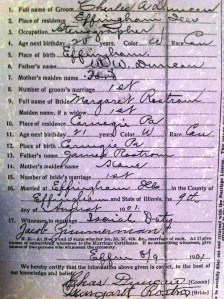 Full Name of Groom Charles A Duncan
Place of residence Effingham Ills
Occupation Stenographer
4. Age next birthday 28 Color W Race Cau
5. Place of birth Effingham
6. Father's name W. W. Duncan
7. Mother's maiden name
8. Number of groom's marriage 1st
9. Full name of Bride Margaret Rostrom
Maiden name, if a widow
10. Place of residence Carnegie Pa
11. Age next birthday 21 Color W Race Cau
12. Place of birth Carnegie Pa
13. Father's name James Rostrom
14. Mother's maiden name
15. Number of bride's marriage 1st
16. Married at Effingham Ills in the County of
Effingham and State of Illinois, the 9th
day of August 1901
17. Witnesses to marriage Josiah Doty
Jacob Zimmerman
Effing 8/9 1901
We hereby certify that the information above given is correct, to the best
of our knowledge and belief.
Chas Duncan (Groom)
Margaret Rostrom (Bride)